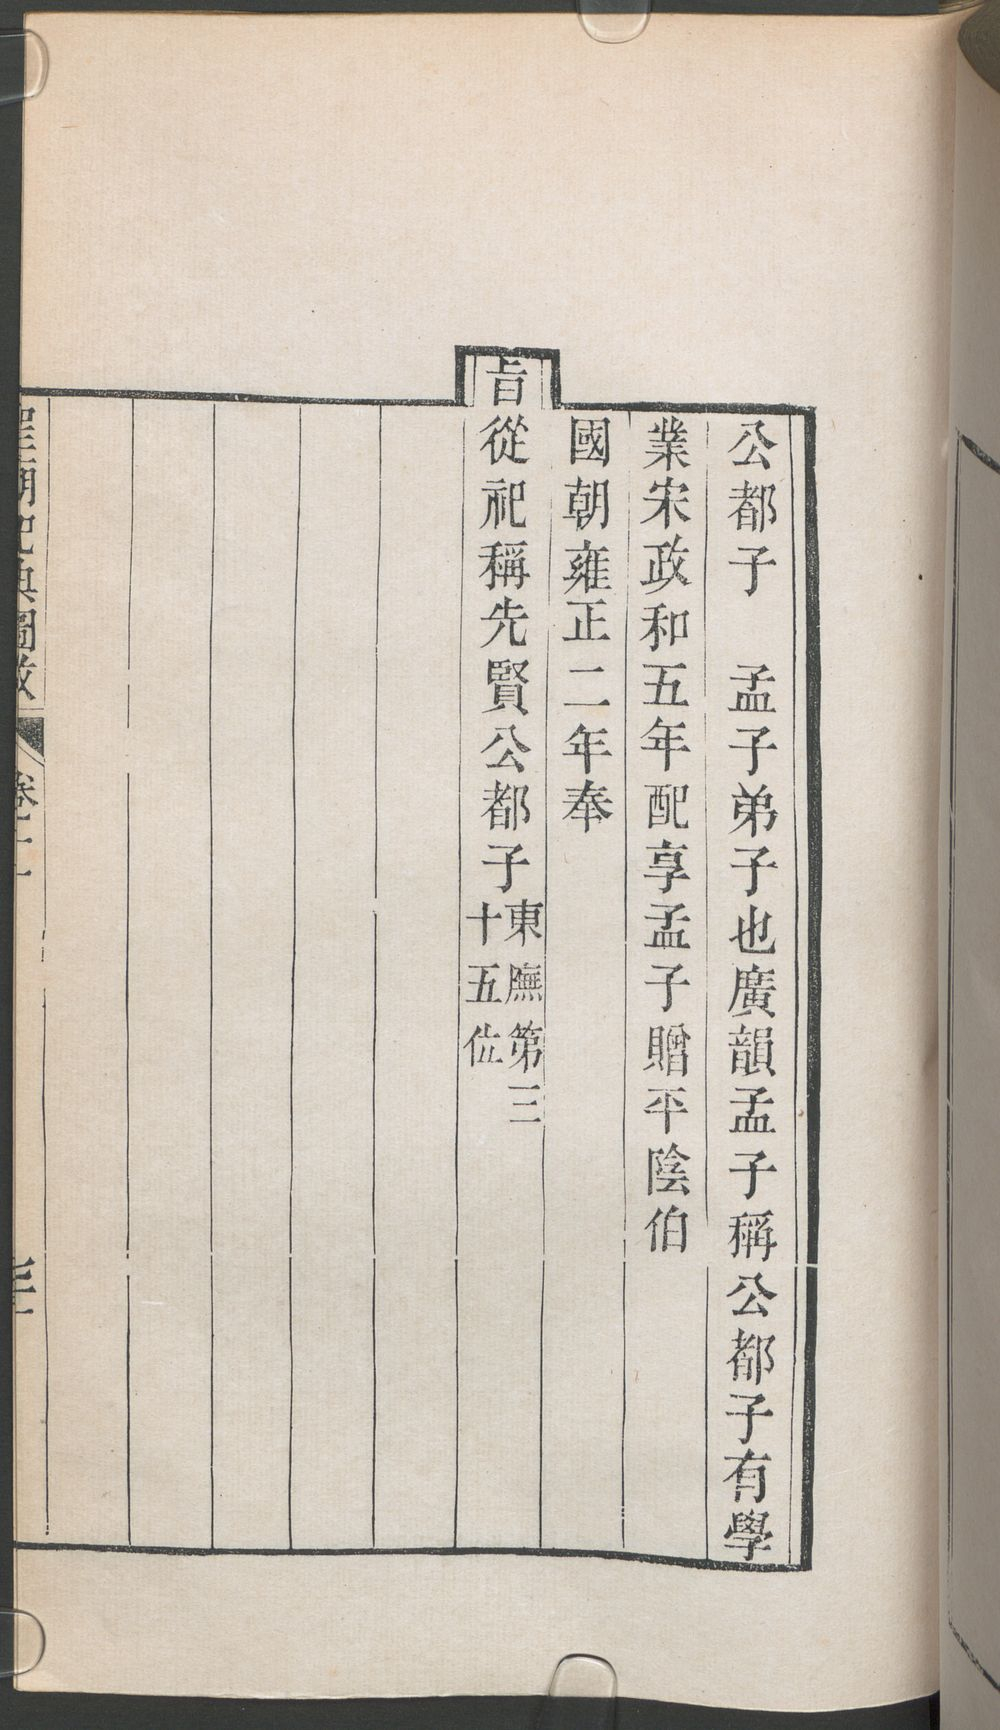 公都子　孟子弟子也廣韻孟子稱公都子有學
業宋政和五年配享孟子贈平陰伯
國朝雍正二年奉
旨從祀稱先賢公都子東廡第三
十五位
卷十二